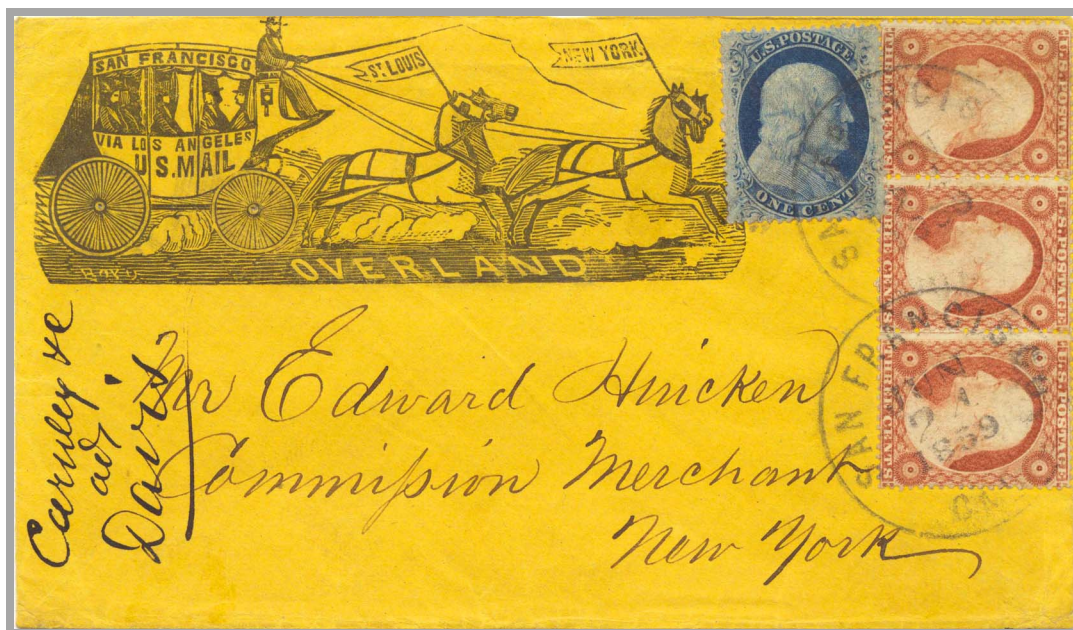 SAN FRANCISCO
VIA LOS ANGELES
U.S. MAIL
ST. LOUIS
NEW YORK
OVERLAND
U.S. POSTAGE
ONE CENT
U.S. POSTAGE
THREE CENTS
U.S. POSTAGE
THREE CENTS
U.S. POSTAGE
THREE CENTS
SAN FRANCISCO
SAN FRANCISCO
JUN
1859
CAL
Mr Edward
Commission Merchant
New York
ad
Davis